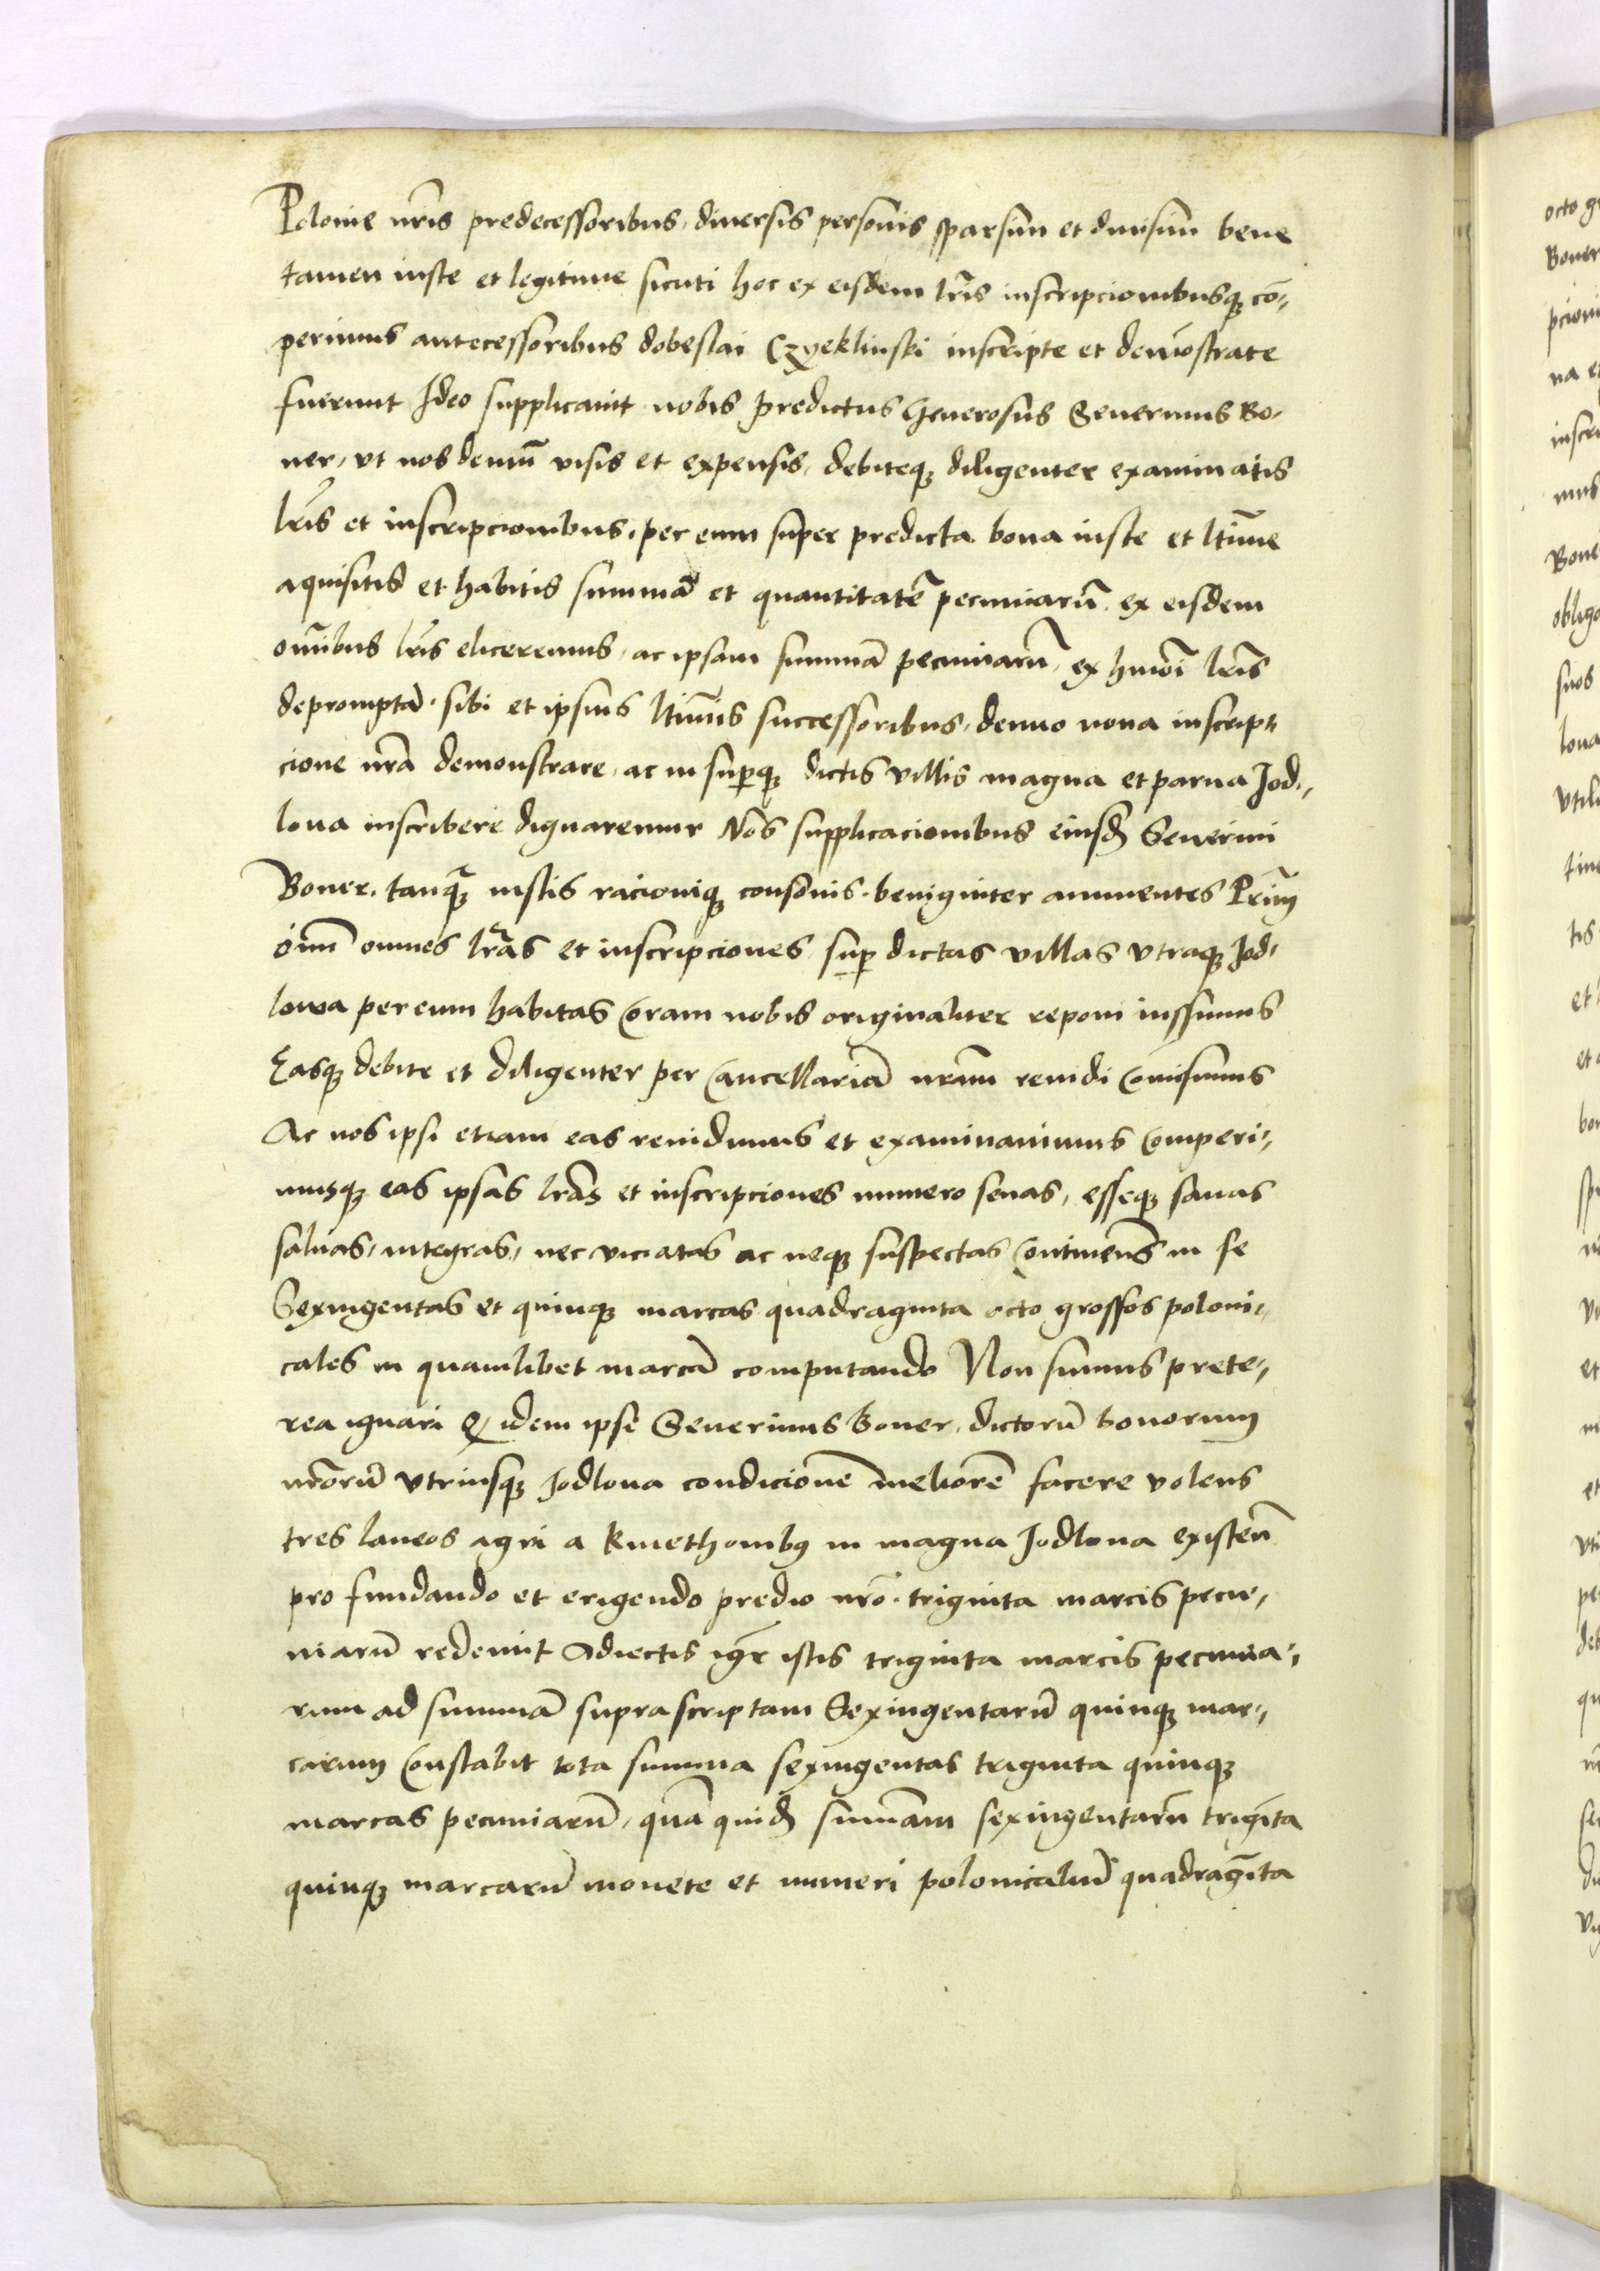 Polonie nr̄is predecessoribus, diuersis personis sparsim et diuisim bene
tamen iuste et legitime sicuti hoc ex eisdem lr̄is inscripcionibusq₃ cō-
perimus antecessoribus dobeslai Czyeklinski inscripte et demōstrate
fuerunt Ideo supplicauit nobis predictus Generosus Seuerinus Bo-
ner, vt nos demū visis et expensis, debiteq₃ diligenter examinatis
lr̄is et inscripcionibus, per eum super predicta bona iuste et ltīme
aquisitis et habitis summā et quantitatē pecuniarū ex eisdem
om̄ibus lr̄is eliceremus, ac ipsam summā pecuniarū, ex hmōi lr̄is
depromptā, sibi et ipsius ltīmis successoribus, denuo noua inscrip-
cione nrā demonstrare, ac in sup̄q₃ dictis villis magna et parua Jod-
loua inscribere dignaremur Nos supplicacionibus eiusd̄ Seuerini
Boner, tanq̄₃ iustis racioniq₃ consonis, benigniter annuentes Prīm
om̄ omnes lr̄as et inscripciones sup̄ dictas villas vtraq₃ Jod-
lowa per eum habitas Coram nobis originaliter reponi iussimus
Easq₃ debite et diligenter per Cancellariā nram̄ reuidi Comisimus
Ac nos ipsi etiam eas reuidimus et examinauimus Comperi-
musq₃ eas ipsas lrās et inscripciones numero senas, esseq₃ sanas
saluas, integras, nec viciatas ac neq₃ suspectas Continen̄s in se
Sexingentas et quinq₃ marcas quadraginta octo grossos poloni-
cales in quamlibet marcā computando Non sumus prete-
rea ignari Q idem ipse Seuerinus Boner, dictorū bonorum
nrōrū vtriusq₃ Jodloua condicionē meliorē facere volens
tres laneos agri a kmethonibus in magna Jodloua existen̄
pro fundando et erigendo predio nrō, triginta marcis pecu-
niarū redemit Adiectis igr̄ istis triginta marcis pecunia-
rum ad summā supra scriptam Sexingentarū quinq₃ mar-
carum Constabit tota summa sexingentas triginta quinq₃
marcas pecuniarū, quā quid̄ sum̄am sexingentarū trigīta
quinq₃ marcarū monete et numeri polonicaliū quadragīta